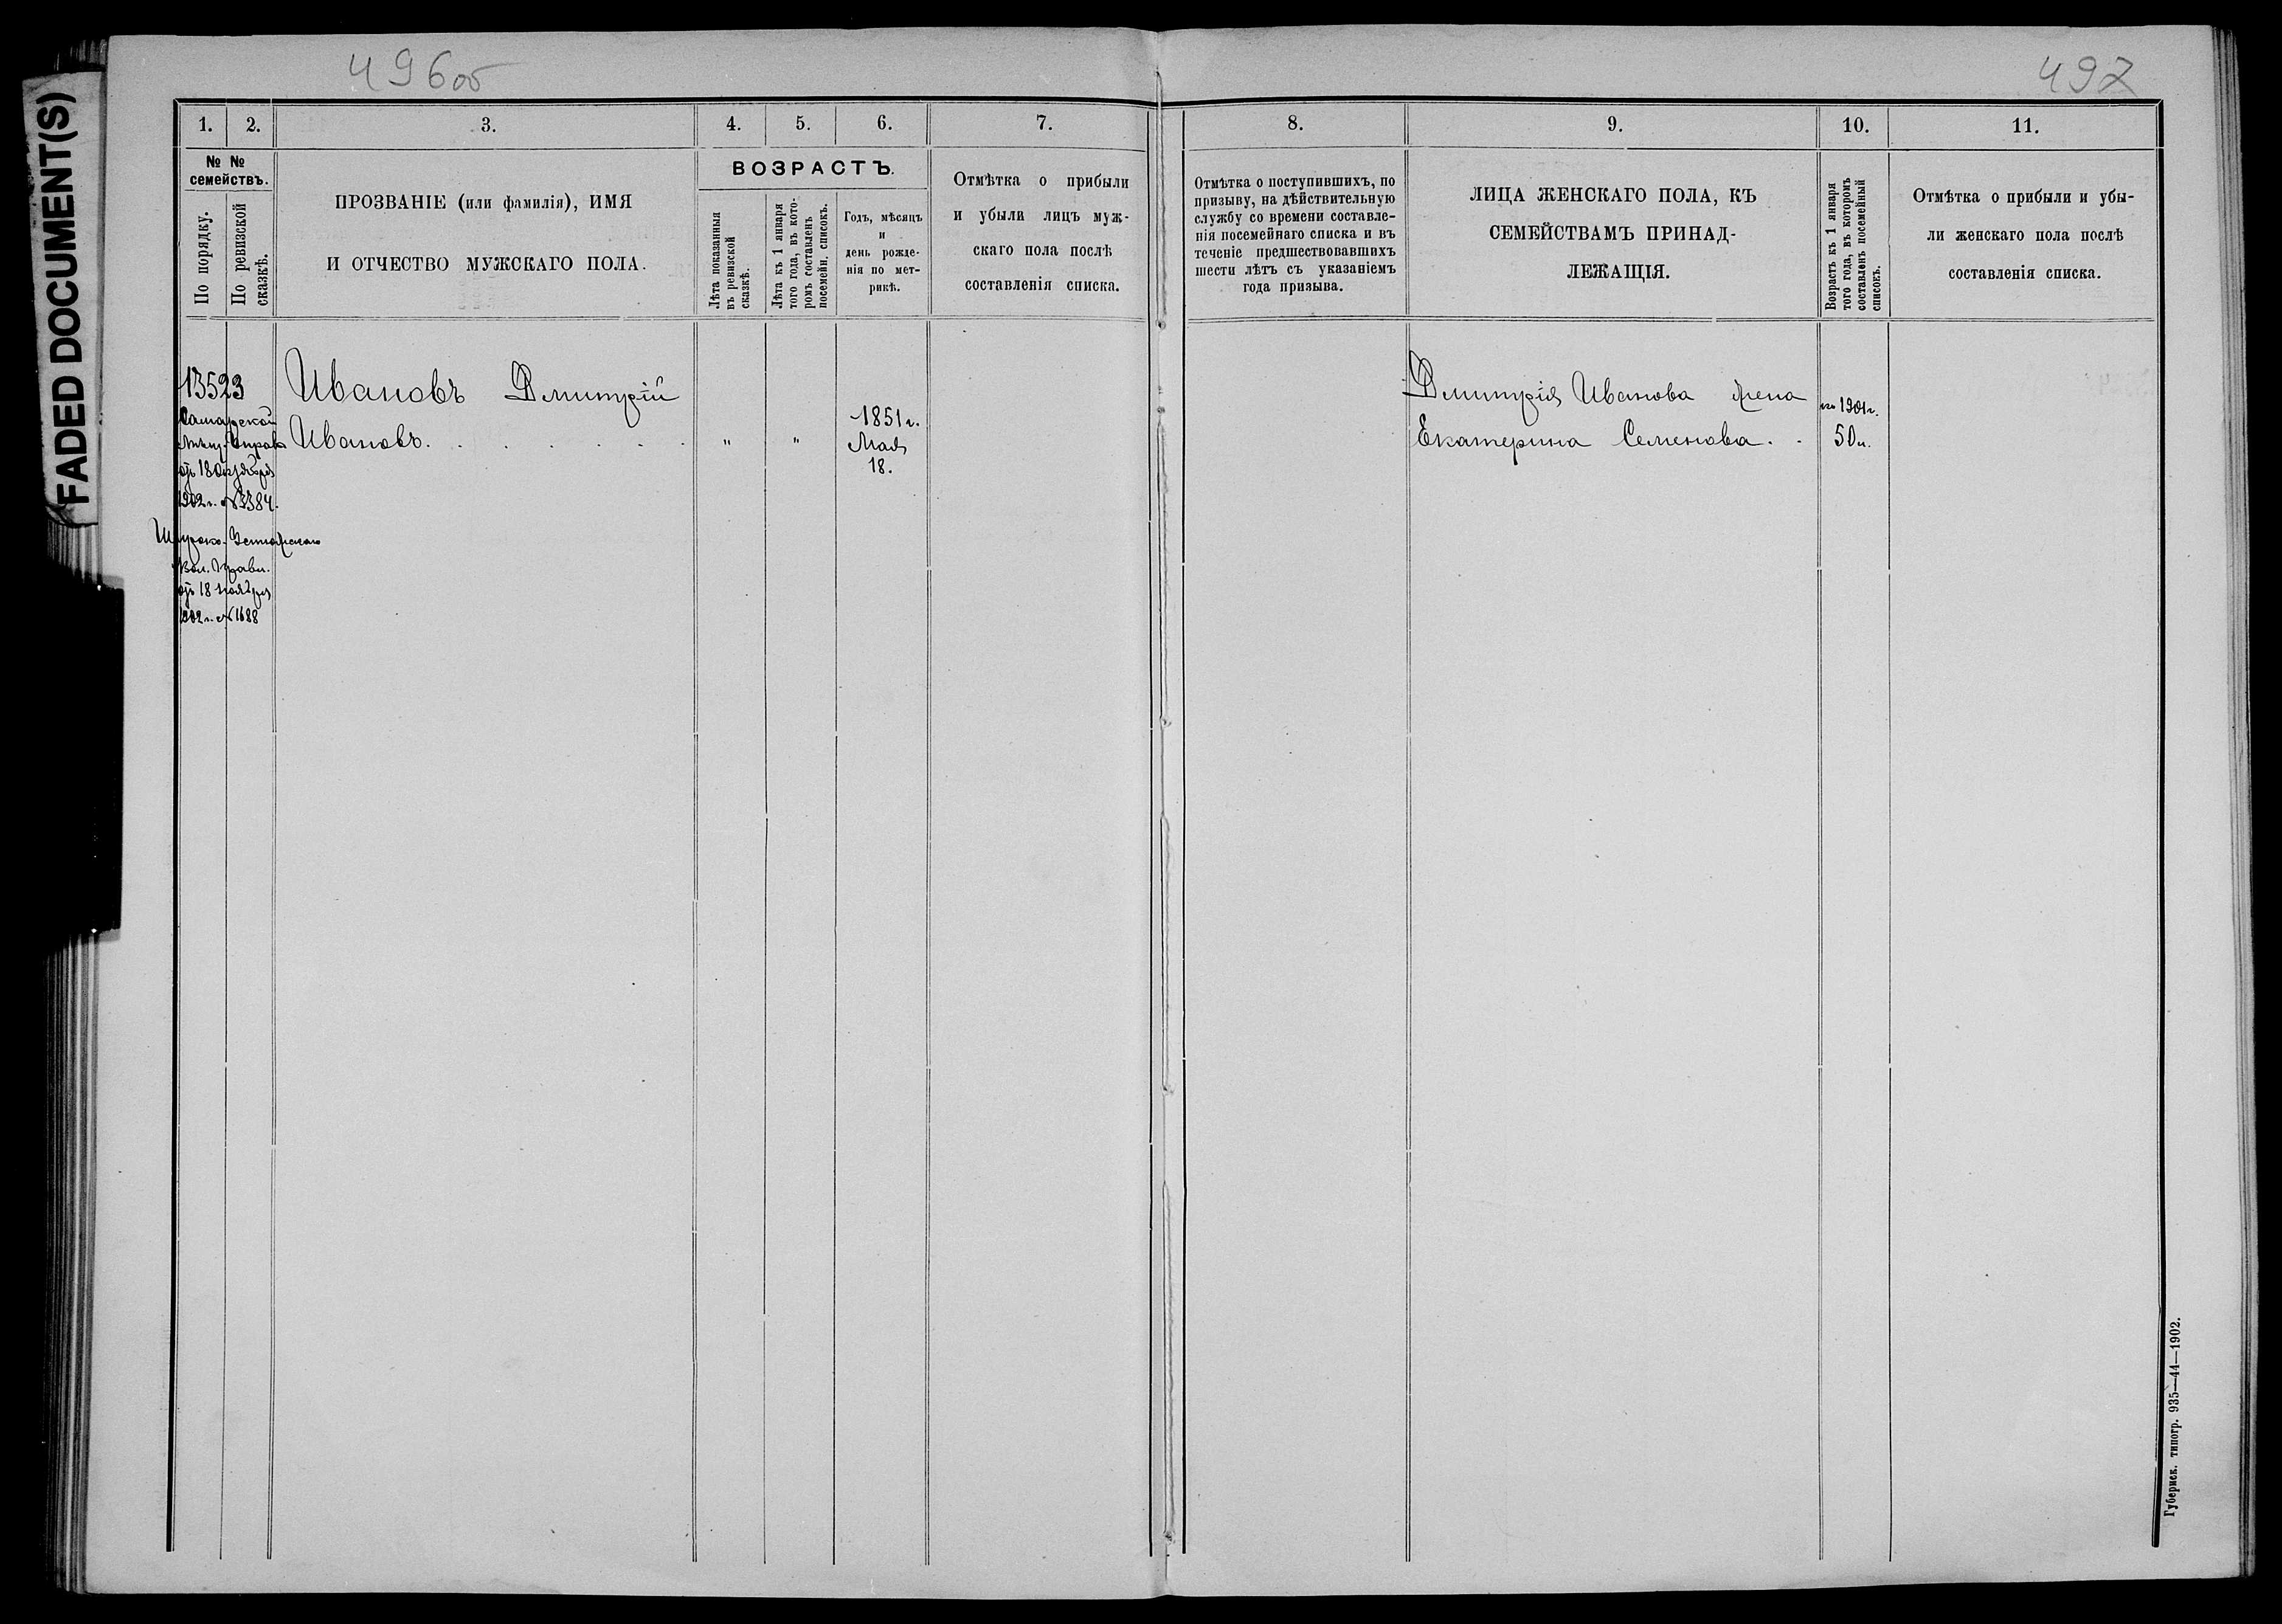 FADED DOCUMENT(S)
496об
497
1.
2.
3.
4.
5.
6.
7.
8.
9.
10.
11.
№ №
семействъ.
По порядку.
По ревизской
сказкѣ.
ПРОЗВАНІЕ (или фамилія), ИМЯ
И ОТЧЕСТВО МУЖСКАГО ПОЛА.
ВОЗРАСТЪ.
Лѣта показанныя
въ ревизской
сказкѣ.
Лѣта къ 1 января
того года, въ кото-
ромъ составленъ
посемейн. списокъ.
Годъ, мѣсяцъ
и
день рожде-
нія по мет-
рикѣ.
Отмѣтка о прибыли
и убыли лицъ муж-
скаго пола послѣ
составленія списка.
Отмѣтка о поступившихъ, по
призыву, на дѣйствительную
службу со времени составле-
нія посемейнаго списка и въ
теченіе предшествовавшихъ
шести лѣтъ съ указаніемъ
года призыва.
ЛИЦА ЖЕНСКАГО ПОЛА, КЪ
СЕМЕЙСТВАМЪ ПРИНАД-
ЛЕЖАЩІЯ.
Возрастъ къ 1 января
того года, въ которомъ
составленъ посемейный
списокъ.
Отмѣтка о прибыли и убы-
ли женскаго пола послѣ
составленія списка.
13523
Самарской
Мѣщ. Управы
отъ 18 октября
1902 г. №3384.
Вол. Правл.
отъ 18 ноября
1902 г. №1688
Ивановъ Дмитрій
Ивановъ. . . . . .
"
"
1851 г.
Мая
18.
Дмитрія Иванова жена
Екатерина Семенова. .
къ 1901 г.
50 л.
Губернск. типогр. 935—44—1902.